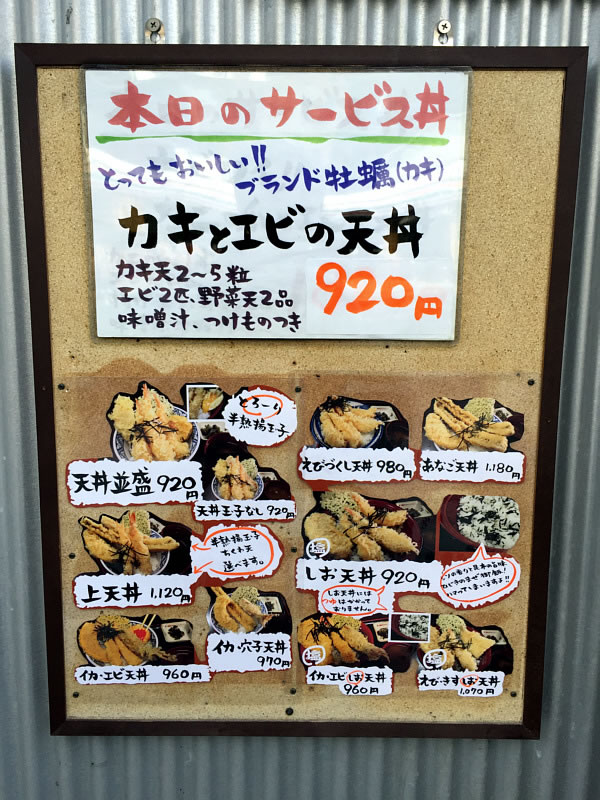 本日のサービス丼
とってもおいしい!!
ブランド牡蠣(カキ)
カキとエビの天丼
カキ天2〜5粒
エビ2匹、野菜天2品
味噌汁、つけものつき
920円
とろ〜り
半熟揚玉子
天丼並盛 920円
天丼玉子なし 920円
半熟揚玉子
ちくわ天
選べます。
上天丼 1,120円
イカ・穴子天丼
970円
イカ・エビ天丼 960円
えびづくし天丼 980円
あなご天丼 1,180円
塩
しお天丼 920円
しお天丼には
つゆはかかって
おりません。
塩
イカ・エビしお天丼
960円
塩
えび・きすしお天丼
1,070円